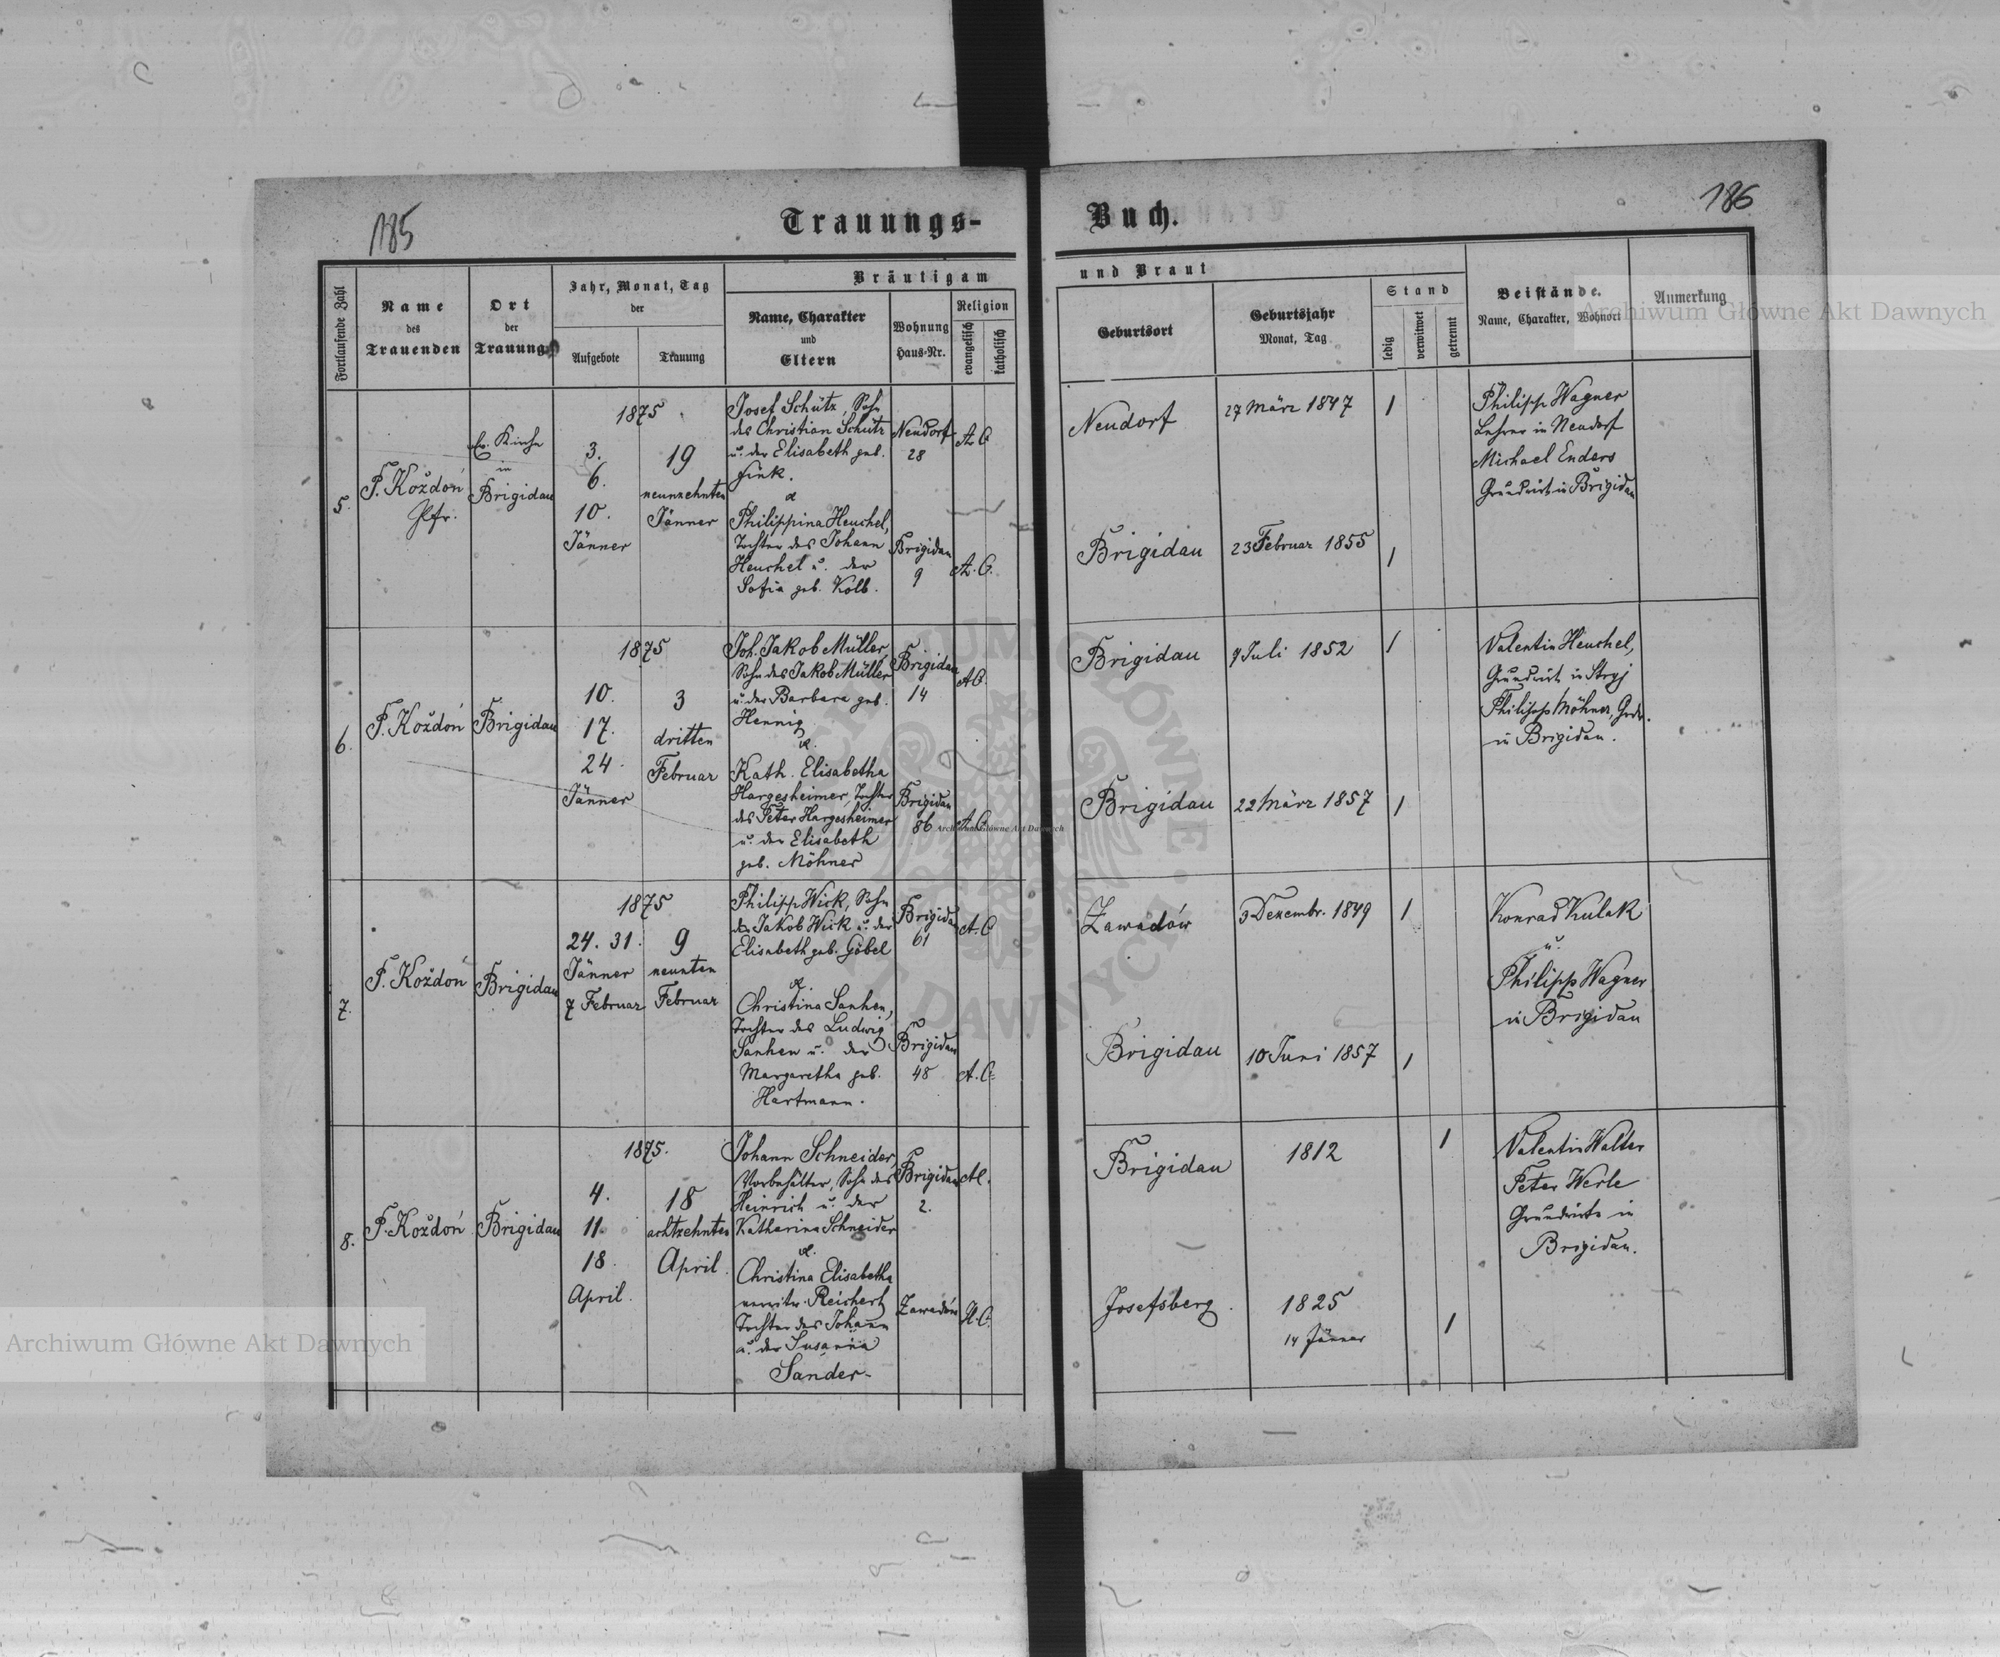 185
186
Trauungs-
Buch.
Fortlaufende Zahl
Name
des
Trauenden
Ort
der
Trauung
Jahr, Monat, Tag
der
Aufgebote
Trauung
Bräutigam
Name, Charakter
und
Eltern
Wohnung
Haus-Nr.
Religion
evangelisch
katholisch
und Braut
Geburtsort
Geburtsjahr
Monat, Tag
Stand
ledig
verwitwet
getrennt
Beistände.
Name, Charakter, Wohnort
Anmerkung
5.
F. Koždoń
Pfr.
Ev. Kirche
in
Brigidau
1875
3.
6.
10.
Jänner
19
neunzehnten
Jänner
Josef Schütz, Sohn
des Christian Schütz
u. der Elisabeth geb.
Fink.
&
Philippina Heuchel,
Tochter des Johann
Heuchel u. der
Sofia geb. Kolb.
Neudorf
28
A. C.
Brigidau
9
A. C.
Neudorf
27 März 1847
1
Brigidau
23 Februar 1855
1
Philipp Wagner
Lehrer in Neudorf
Michael Enders
Grundwirt in Brigidau
6.
F. Koždoń
Brigidau
1875
10.
17.
24.
Jänner
3
dritten
Februar
Joh. Jakob Müller,
Sohn des Jakob Müller
u. der Barbara geb.
Hennig
&.
Kath. Elisabetha
Hargesheimer, Tochter
des Peter Hargesheimer
u. der Elisabeth
geb. Möhner
Brigidau
14
A C.
Brigidau
86
A. C.
Brigidau
9 Juli 1852
1
Brigidau
22 März 1857
1
Valentin Heuchel,
Grundwirt in Stryj
Philipp Möhner, Grdw.
in Brigidau.
7.
F. Koždoń
Brigidau
1875
24. 31.
Jänner
7 Februar
9
neunten
Februar
Philipp Wick, Sohn
des Jakob Wick u. der
Elisabeth geb. Göbel
&.
Christina Sanhen,
Tochter des Ludwig
Sanhen u. der
Margaretha geb.
Hartmann.
Brigidau
61
A. C
Brigidau
48
A. C.
Zawadów
3 Dezembr. 1849
1
Brigidau
10 Juni 1857
1
Konrad Kulak
u.
Philipp Wagner
in Brigidau
8.
F. Koždoń
Brigidau
1875.
4.
11.
18.
April.
18
achtzehnten
April.
Johann Schneider,
Vorbehälter, Sohn des
Heinrich u. der
Katharina Schneider
&.
Christina Elisabetha
verwitw. Reichert
Tochter des Johann
u. der Susanna
Sander-
Brigidau
2.
AC.
Zawadów
H. C.
Brigidau
1812
1
Josefsberg.
1825
14 Jänner
1
Valentin Walter
Peter Werle
Grundwirte in
Brigidau.
Archiwum Główne Akt Dawnych
Archiwum Główne Akt Dawnych
Archiwum Główne Akt Dawnych
ARCHIWUM GŁÓWNE AKT DAWNYCH